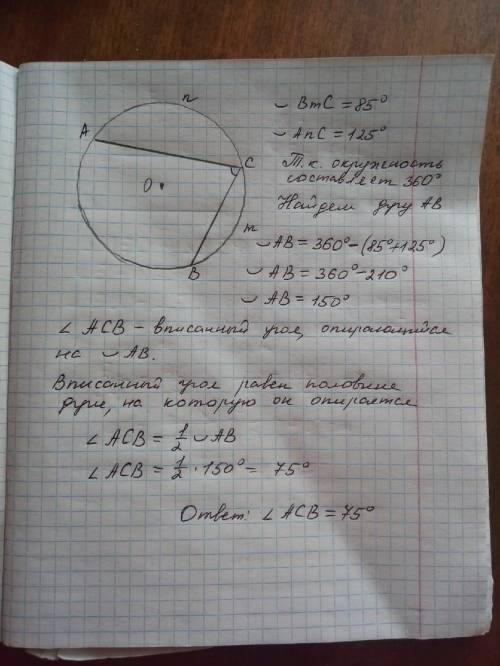 n
A
C
O
m
B
◡ BmC = 85°
◡ AnC = 125°
Т.к. окружность
составляет 360°
Найдем дугу AB
◡ AB = 360° - (85° + 125°)
◡ AB = 360° - 210°
◡ AB = 150°
∠ ACB - вписанный угол, опирающийся
на ◡ AB.
Вписанный угол равен половине
дуге, на которую он опирается
∠ ACB = 1/2 ◡ AB
∠ ACB = 1/2 · 150° = 75°
Ответ: ∠ ACB = 75°